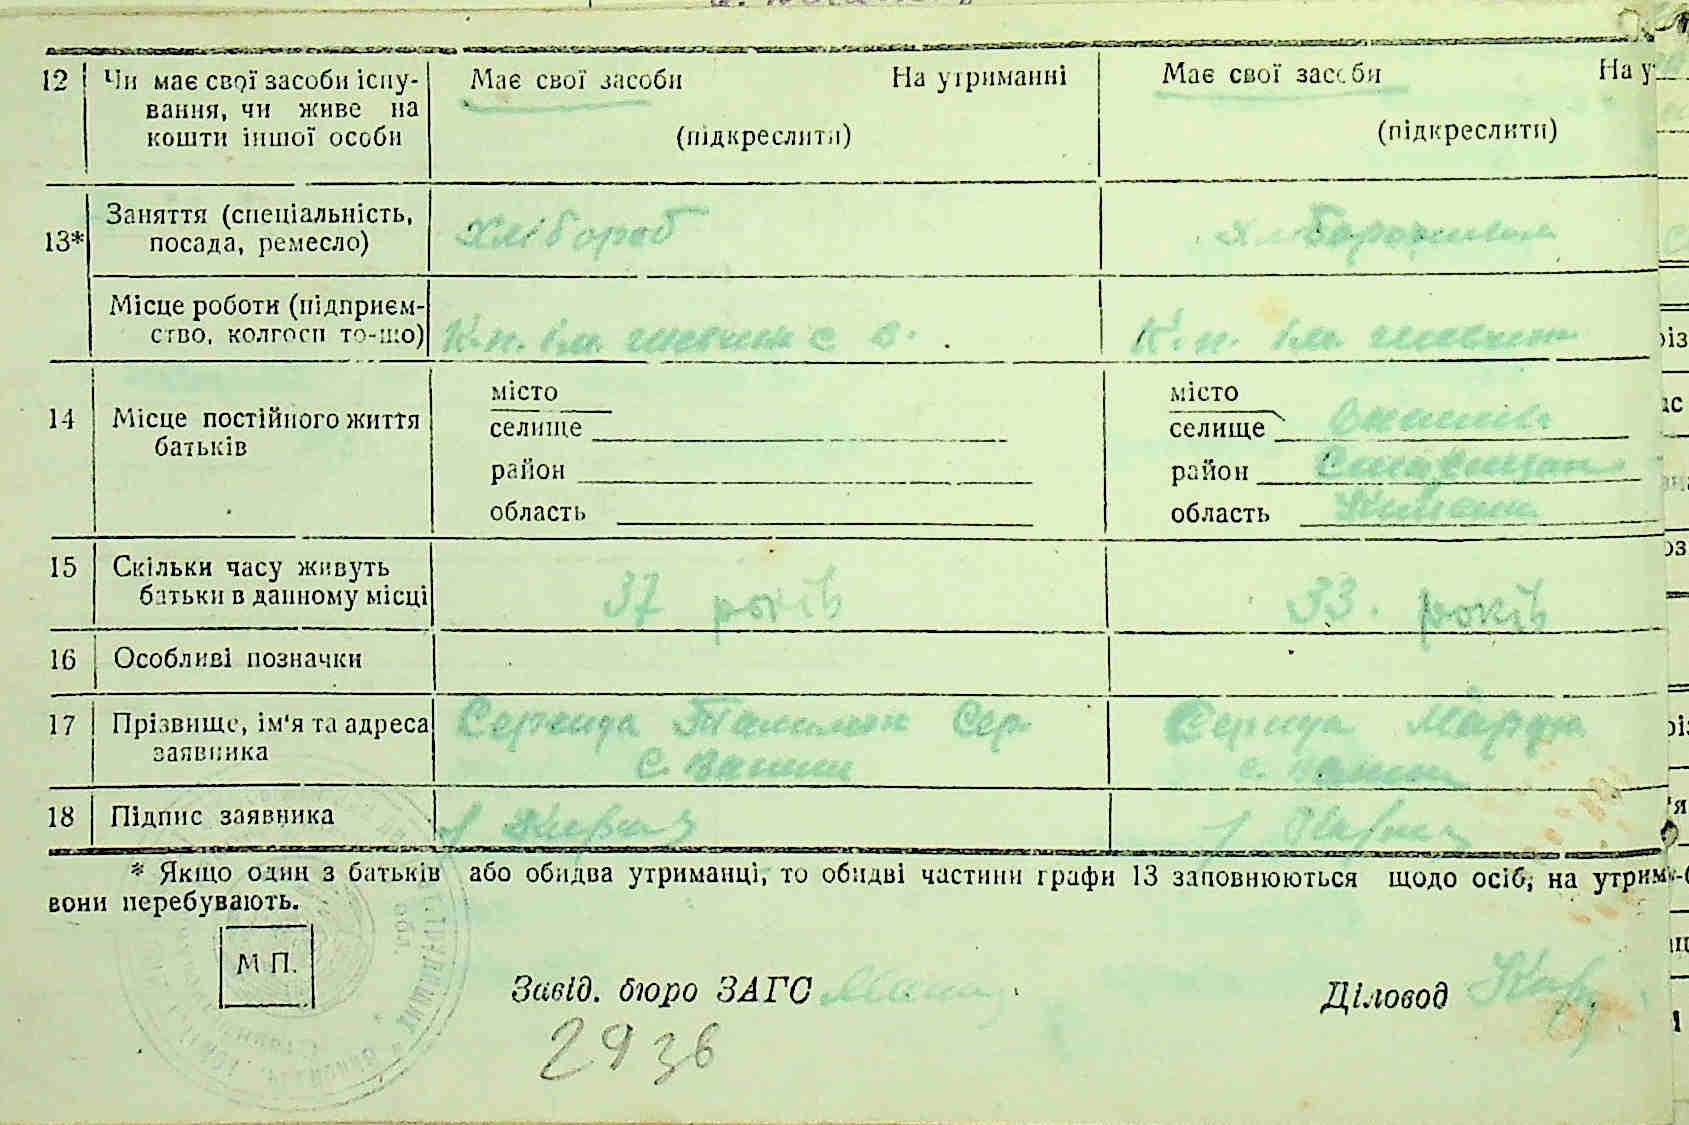 12 Чи має свої засоби існу-
вання, чи живе на
кошти іншої особи
Має свої засоби На утриманні
(підкреслити)
Має свої засоби На у
(підкреслити)
13* Заняття (спеціальність,
посада, ремесло)
хлібороб
Місце роботи (підприєм-
ство, колгосп то-що)
К.п. ім.
К.п. ім.
14 Місце постійного життя
батьків
місто
селище
район
область
місто
селище
район
область
15 Скільки часу живуть
батьки в данному місці
37 років
33. років
16 Особливі позначки
17 Прізвище, ім'я та адреса
заявника
с.
Марфа
с.
18 Підпис заявника
* Якщо один з батьків або обидва утриманці, то обидві частини графи 13 заповнюються щодо осіб, на утрим
вони перебувають.
М П.
Завід. бюро ЗАГС
Діловод
2936